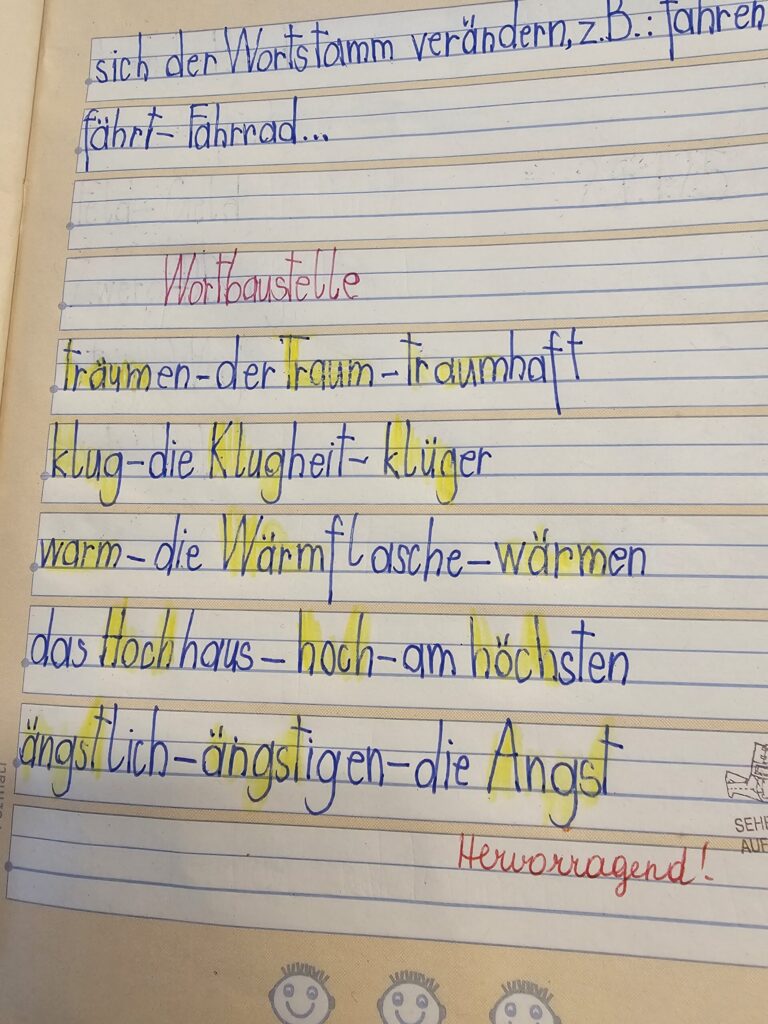 sich der Wortstamm verändern, z.B.: fahren
fährt – Fahrrad...
Wortbaustelle
träumen – der Traum – traumhaft
klug – die Klugheit – klüger
warm – die Wärmflasche – wärmen
das Hochhaus – hoch – am höchsten
ängstlich – ängstigen – die Angst
Hervorragend!